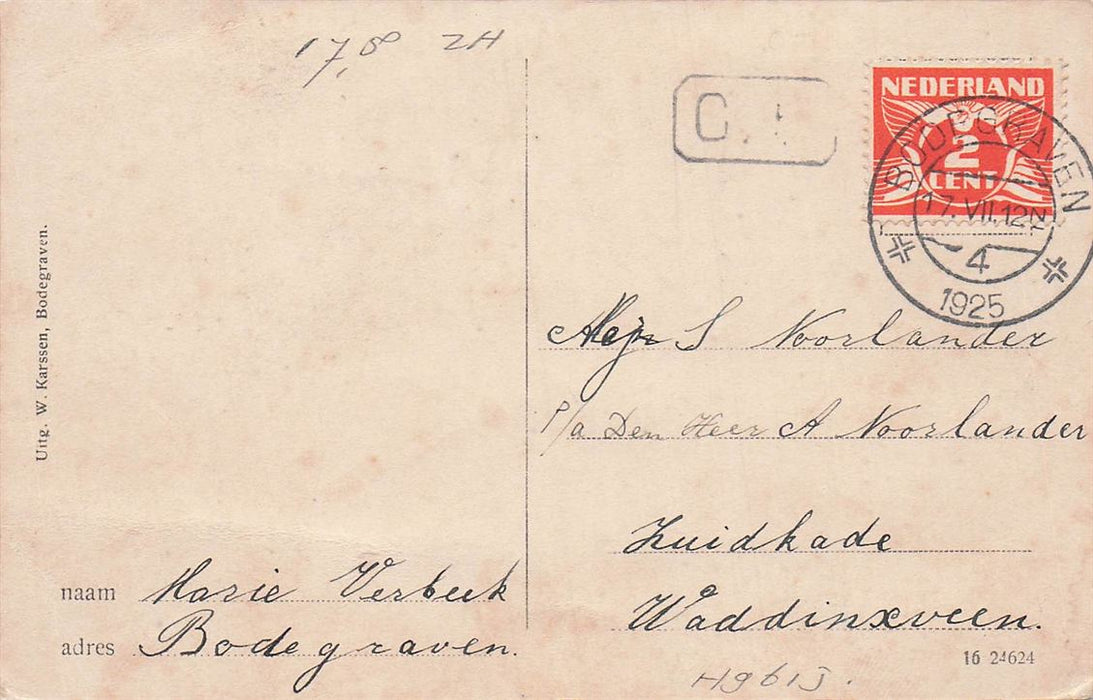 17,50 ZH
NEDERLAND
2
CENT
BODEGRAVEN
17.VII.12N
4
1925
Uitg. W. Karssen, Bodegraven.
Mejr S Noorlander
p/a Den Heer A Noorlander
Zuidkade
Waddinxveen.
naam Marie Verbeek
adres Bodegraven.
16 24624